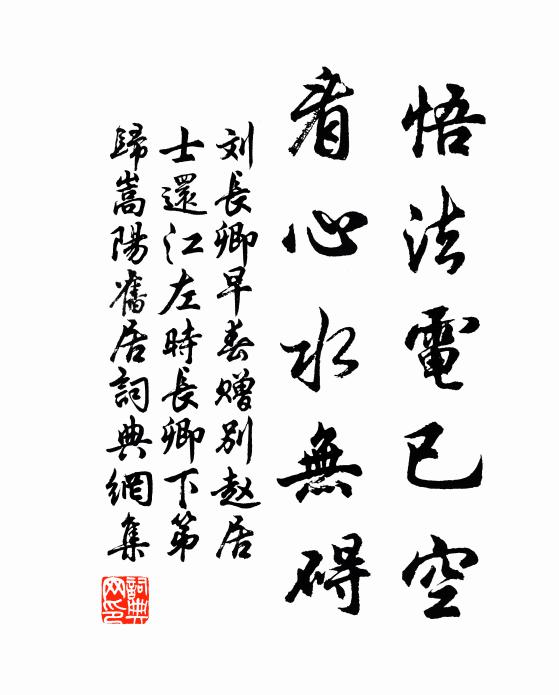 悟法電已空
看心水無碍
刘長卿早春赠别赵居
士還江左時長卿下第
歸嵩陽舊居詞典網集
詞典網印